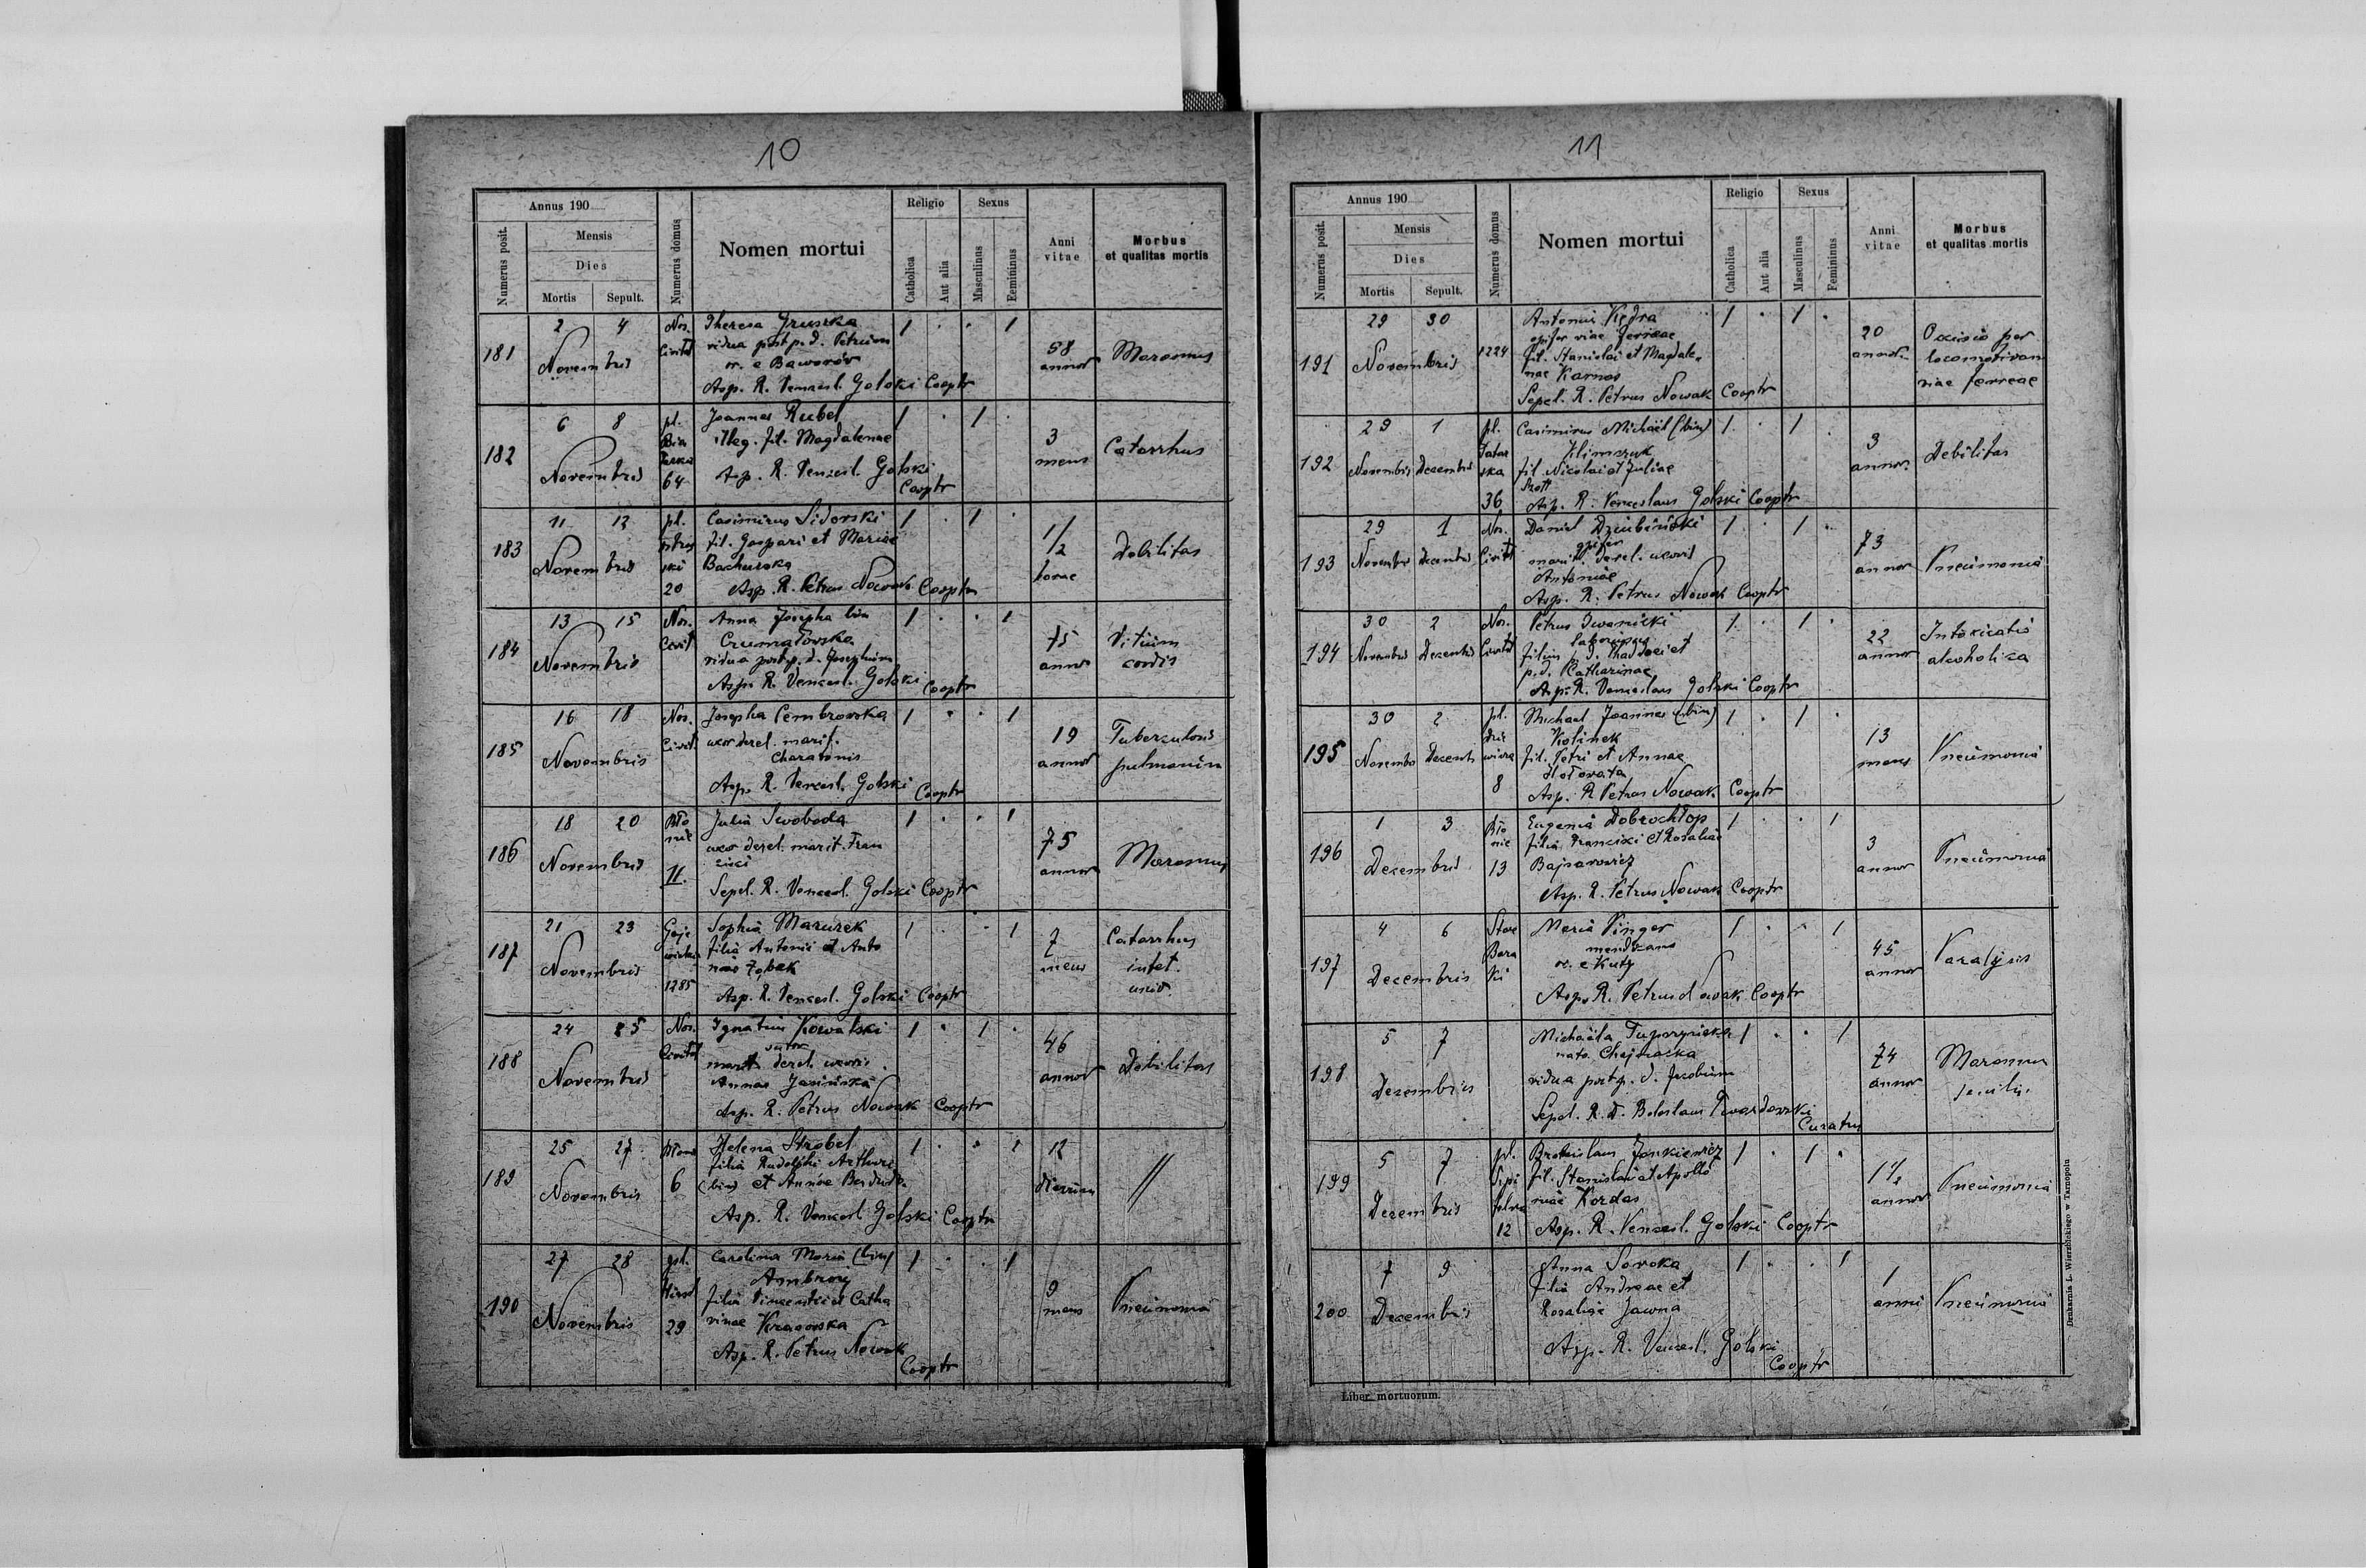 10
Annus 190
Numerus posit.
Mensis
Dies
Mortis Sepult.
Numerus domus
Nomen mortui
Religio
Catholica
Aut alia
Sexus
Masculinus
Femininus
Anni vitae
Morbus et qualitas mortis
181 2 4 Novembris Nos. Civitat
Theresa Gruszka 1 . . 1
vidua post p. d. Petrum
or. e Baworów
Asp. R. Venzesl. Golski Cooptr
58 annor Marasmus
182 6 8 Novembris pl. 64
Joannes Rubel 1 . 1 .
illeg. fil. Magdalenae
Asp. R. Venzesl. Golski
Cooptr
3 mens Catarrhus
183 11 12 Novembris pl. 20
Casimirus Sidorski 1 . 1 .
fil. Gaspari et Mariae
Asp. R. Petrus Nowak Cooptr
1/2 horae Debilitas
184 13 15 Novembris Nos. Civit
Anna Josepha bin 1 . . 1
vidua post p. d. Josephum
Asp. R. Venzesl. Golski Cooptr
75 annor Vitium cordis
185 16 18 Novembris Nos. Civit.
Josepha Cembrowska 1 . . 1
uxor derel. marit.
Asp. R. Venzesl. Golski Cooptr
19 annor Tuberculosis pulmonum
186 18 20 Novembris Bło nie 11.
Julia Swoboda 1 . . 1
uxor derel. marit. Fran
ciski
Sepel. R. Venzesl. Golski Cooptr
75 annor Marasmus
187 21 23 Novembris 1285
Sophia Mazurek 1 . . 1
filia Antonii et Anto
niae Ząbek
Asp. R. Venzesl. Golski Cooptr
7 mens Catarrhus intest.
188 24 25 Novembris Nos. Civitat
Ignatius Kowalski 1 . 1 .
sutor
marit derel. uxoris
Annae Jasińska
Asp. R. Petrus Nowak Cooptr
46 annor Debilitas
189 25 27 Novembris Błonie 6
Helena Strobel 1 . . 1
filia Rudolphi Arthuri
(bin) et Annae
Asp. R. Venzesl. Golski Cooptr
12 dierum //
190 27 28 Novembris 29
Carolina Maria (bin) 1 . . 1
Ambroży
filia Vincentii et Catha
rinae Krasowska
Asp. R. Petrus Nowak
Cooptr
9 mens Pneumonia
11
Annus 190
Numerus posit.
Mensis
Dies
Mortis Sepult.
Numerus domus
Nomen mortui
Religio
Catholica
Aut alia
Sexus
Masculinus
Femininus
Anni vitae
Morbus et qualitas mortis
191 29 30 Novembris 1224
Antonius Kędra 1 . 1 .
opifer viae ferreae
fil. Stanislai et Magdale
nae Karnas
Sepel. R. Petrus Nowak Cooptr
20 annor. Occisio per locomotivam viae ferreae
192 29 Novembris 1 Decembris pl. Tatar ska 36
Casimirus Michael (bin) 1 . 1 .
Klimczuk
fil. Nicolai et Juliae
Asp. R. Venceslaus Golski Cooptr
3 annor. Debilitas
193 29 Novembris 1 Decembris Nos. Civitat
Daniel Dziubiński 1 . 1 .
opifer
marit. derel. uxoris
Antoniae
Asp. R. Petrus Nowak Cooptr
73 annor Pneumonia
194 30 Novembris 2 Decembris Nos. Civitat
Petrus Iwanicki 1 . 1 .
filius p. d. Thaddaei et
p. d. Katharinae
Asp. R. Venceslaus Golski Cooptr
22 annor Intoxicatio alcoholica
195 30 Novembr 2 Decemb pl. 8
Michael Joannes (bin) 1 . 1 .
Kolinek
fil. Petri et Annae
Hołowata
Asp. R. Petrus Nowak Cooptr
13 mens Pneumonia
196 1 3 Decembris Bło nie 13
Eugenia Dobrochłop 1 . . 1
filia Francisci et Rosaliae
Asp. R. Petrus Nowak Cooptr
3 annor Pneumonia
197 4 6 Decembris Stare Bara ki
Maria Pinger 1 . . 1
or. e Kuty
Asp. R. Petrus Nowak Cooptr
45 annor Paralysis
198 5 7 Decembris
Michaela 1 . . 1
nata
vidua post p. d. Jacobum
Sepel. R. D. Boleslaus Twardowski
Curatus
74 annor Marasmus senilis
199 5 7 Decembris pl. 12
Broneislaus Jankiewicz 1 . 1 .
fil. Stanislai et Apollo
niae Kordas
Asp. R. Venzesl. Golski Cooptr
1 1/2 annor Pneumonia
200 7 9 Decembris
Anna Soroka 1 . . 1
filia Andreae et
Rosaliae Jawna
Asp. R. Venzesl. Golski
Cooptr
1 anni Pneumonia
Liber mortuorum.
Drukarnia L. Wierzbickiego w Tarnopolu